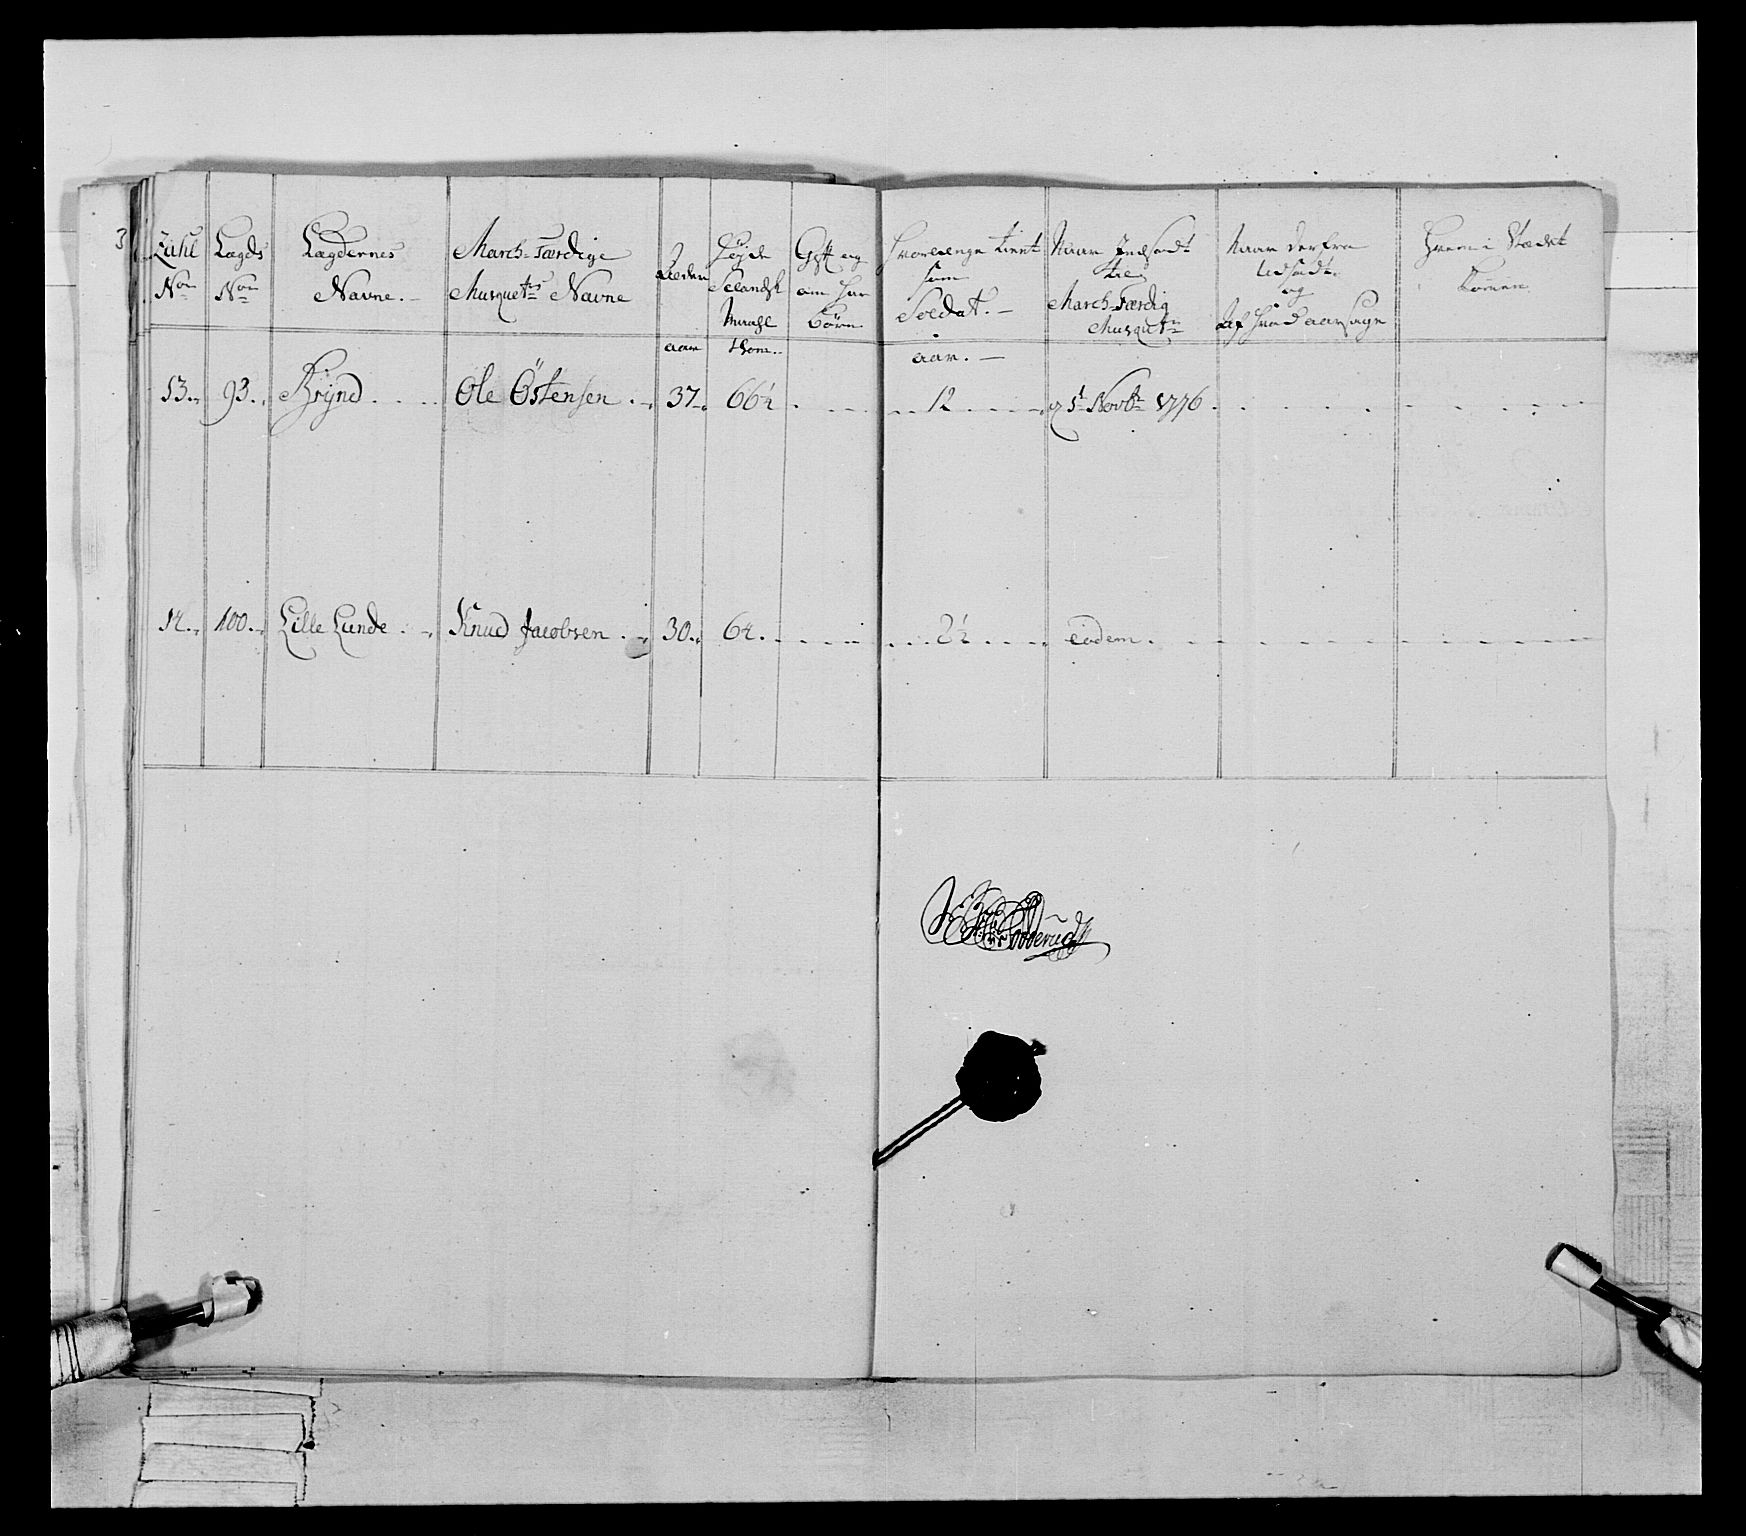 Zahl Nor
Lægds Nor
Lægdernes Navne. –
March-Færdige Musquetrs Navne
Alder
aar
Høyde Selandsk Maahl
tom.
Gift og om har Børn
Hvorlenge tient som Soldat. –
aar. –
Naar Indsadt til March-Færdig Musqutr
Naar derfra Udsadt og Af hvad aarsage
Hvem i Stædet kommen
13. 93. Brynd Ole Östensen 37 66½ 12 1t Novbr 1776
14. 100. Lille Lunde Knud Jacobsen 30 64 2½ eodem